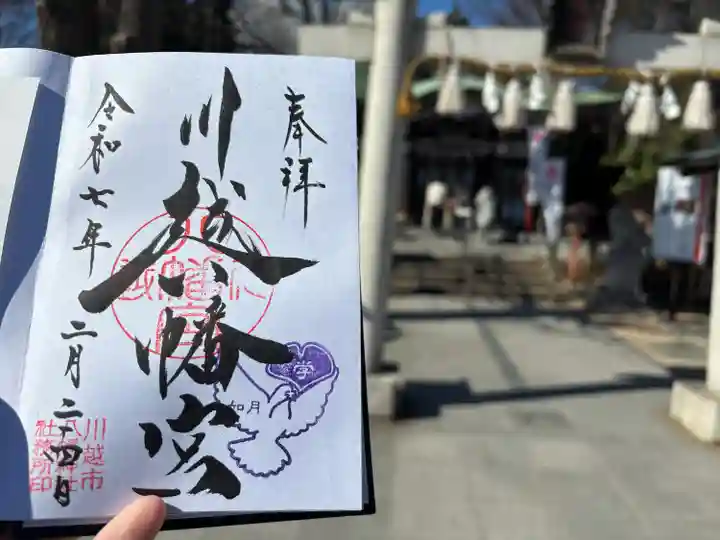 奉拝
川越八幡宮
令和七年 二月 二十四日
学
如月
川越市
社務所印